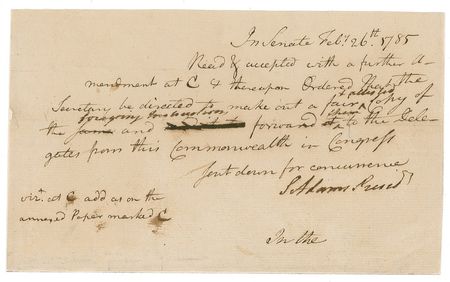 In Senate Feby. 26th. 1785
Read & accepted with a further A-
mendment at C & thereupon Ordered that the
Secretary be directed to make out a fair attested Copy of
the same foregoing Instructions and forward them to the Dele-
gates from this Commonwealth in Congress
Sent down for concurrence
S Adams Presidt
vizt. at C add as on the
annexed Paper marked C
In the